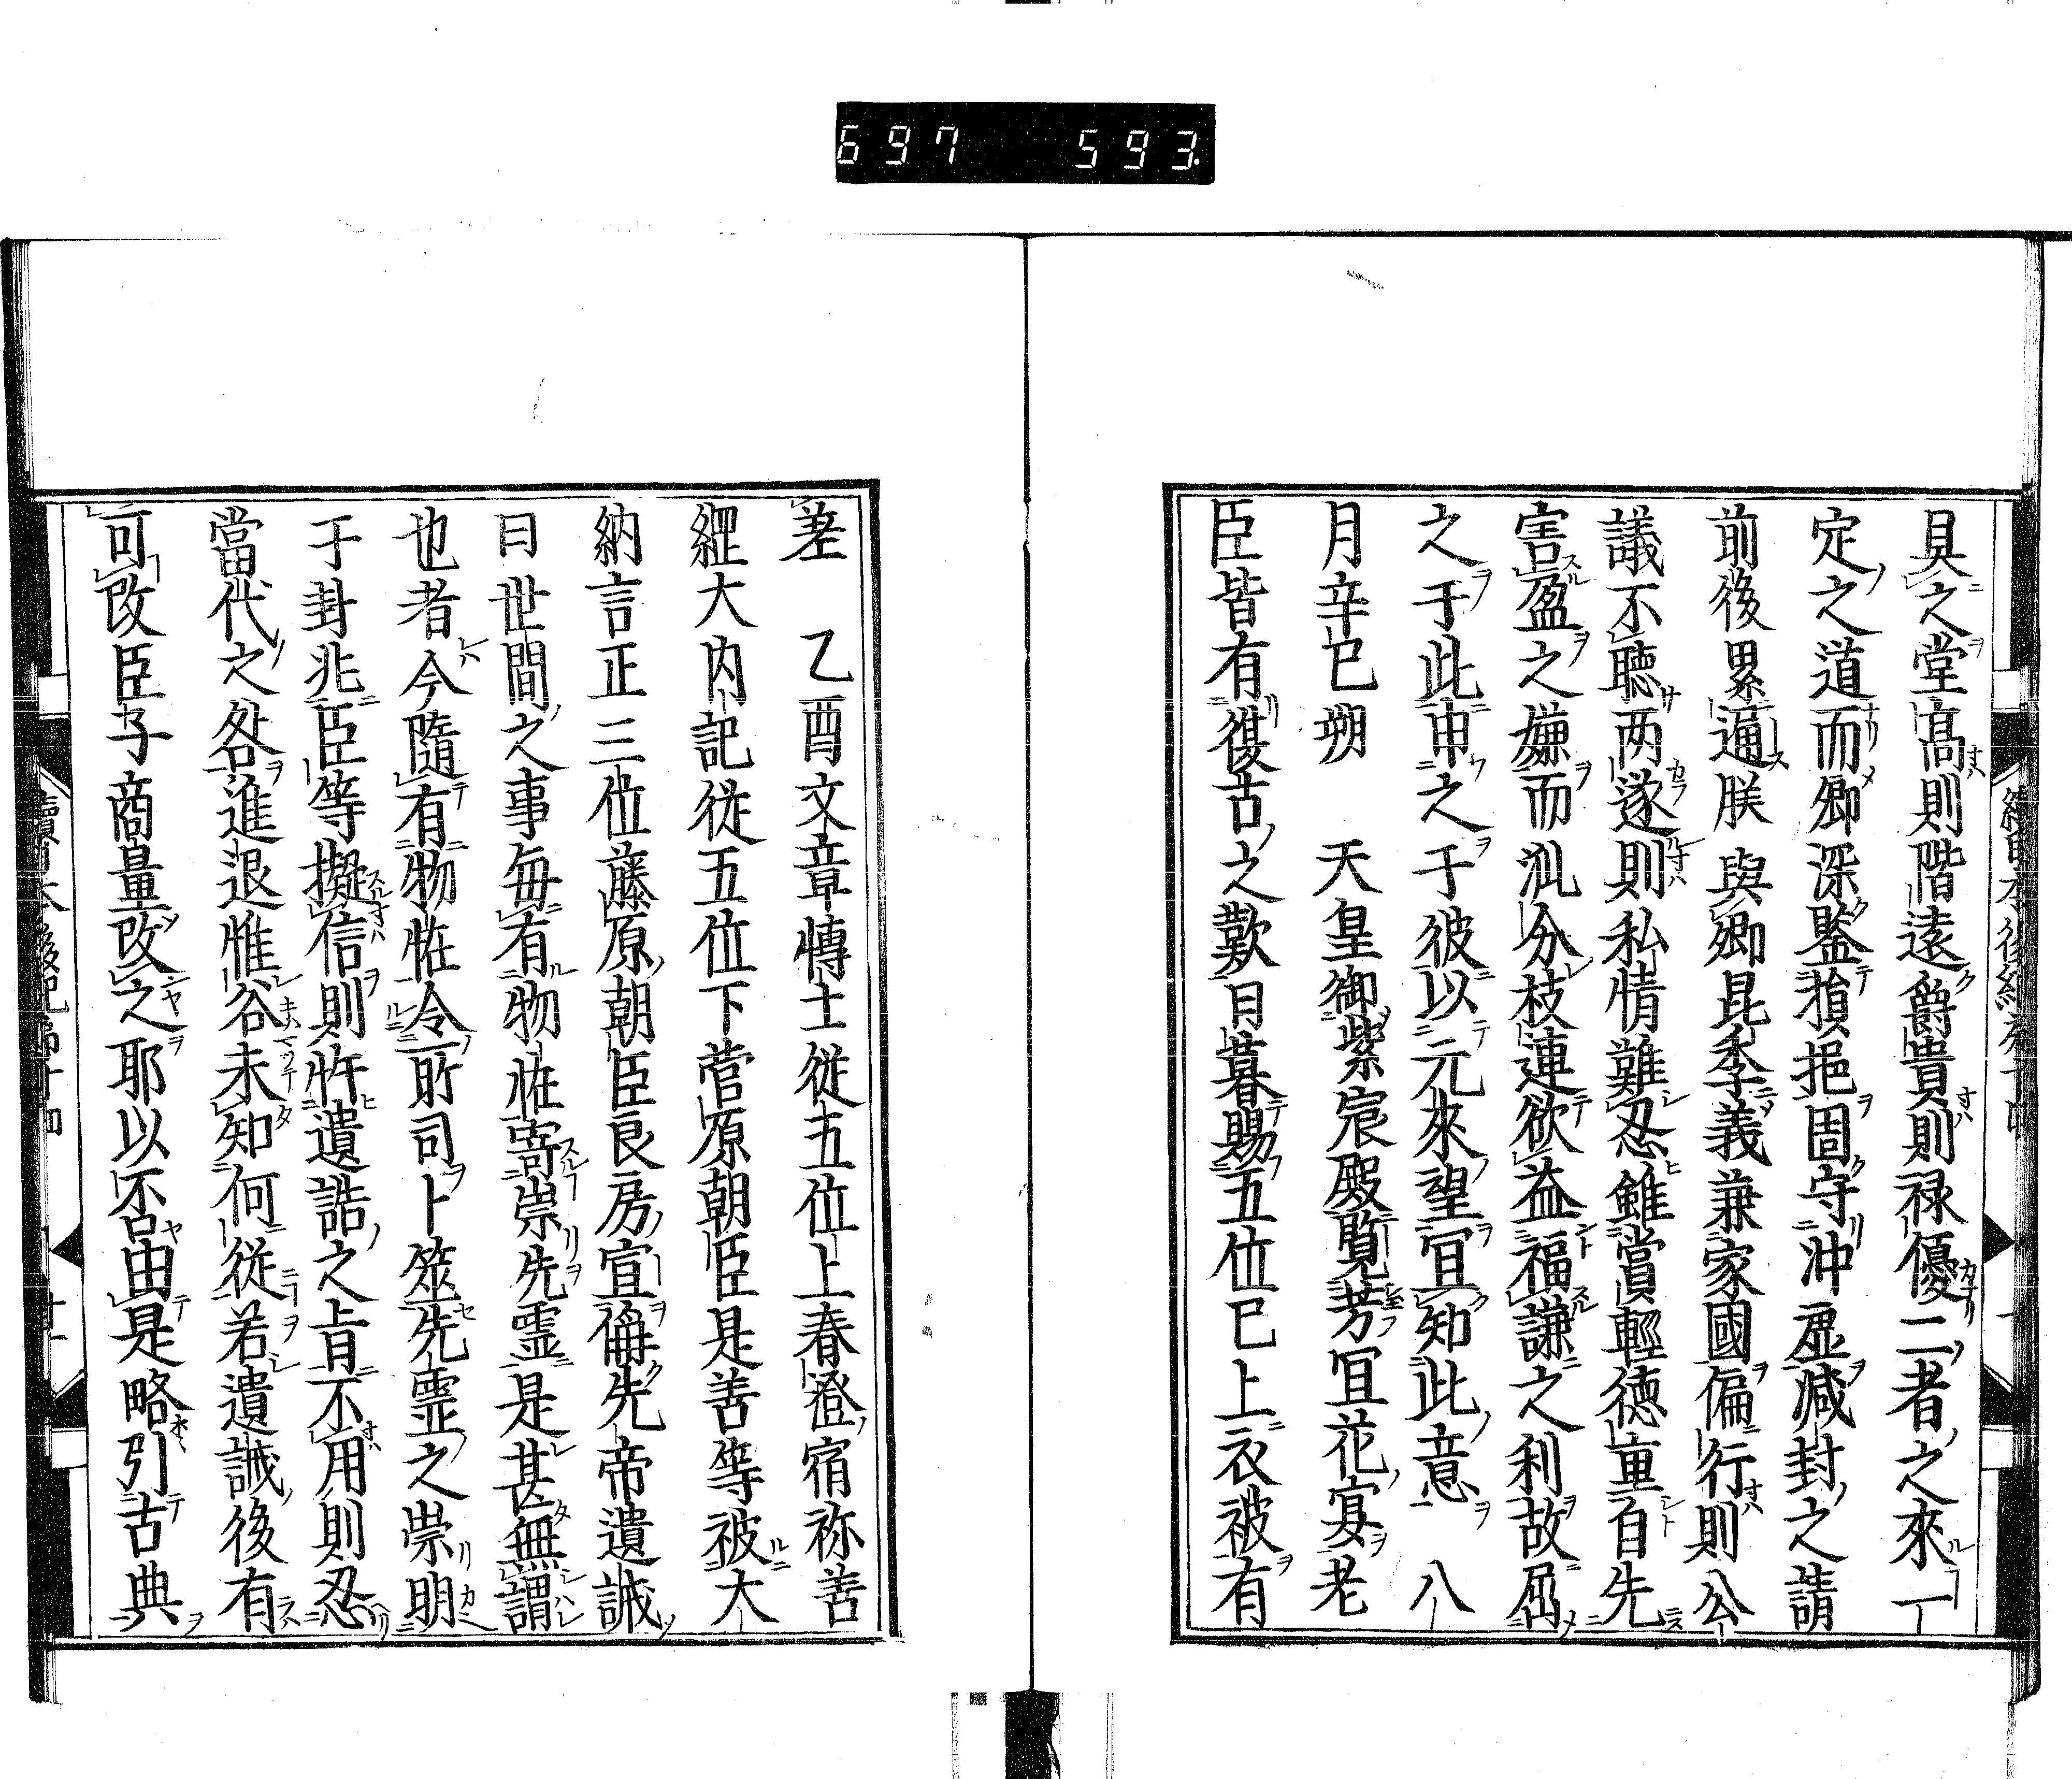 697 593
具之堂髙則階遠爵貴則禄優二者之來一
定之道而卿深鑒損挹固守沖虛减封之請
前後累逼朕與卿昆季義兼家國偏行則公
議不聽两遂則私情難忍雖賞輕徳重自先
害盈之嫌而沠分枝連欲益福謙之利故屈
之于此申之于彼以元來望冝知此意 八
月辛巳朔 天皇御紫宸殿覧芳冝花宴老
臣皆有復古之歎日暮賜五位已上衣被有
差 乙酉文章博士從五位上春澄宿祢善
縄大内記從五位下菅原朝臣是善等被大
納言正三位藤原朝臣良房宣偁先帝遺誡
曰世間之事毎有物恠寄祟先霊是甚無謂
也者今隨有物恠令所司卜筮先霊之祟明
于卦兆臣等擬信則忤遺誥之旨不用則忍
當代之咎進退惟谷未知何從若遺誡後有
可改臣子商量改之耶以否由是略引古典